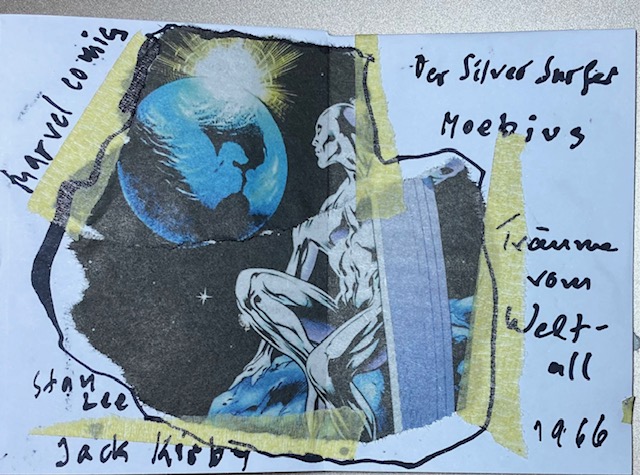 Marvel comis
Der Silver Surfer
Moebius
Träume
vom
Welt-
all
1966
Stan
Lee
Jack Kirby